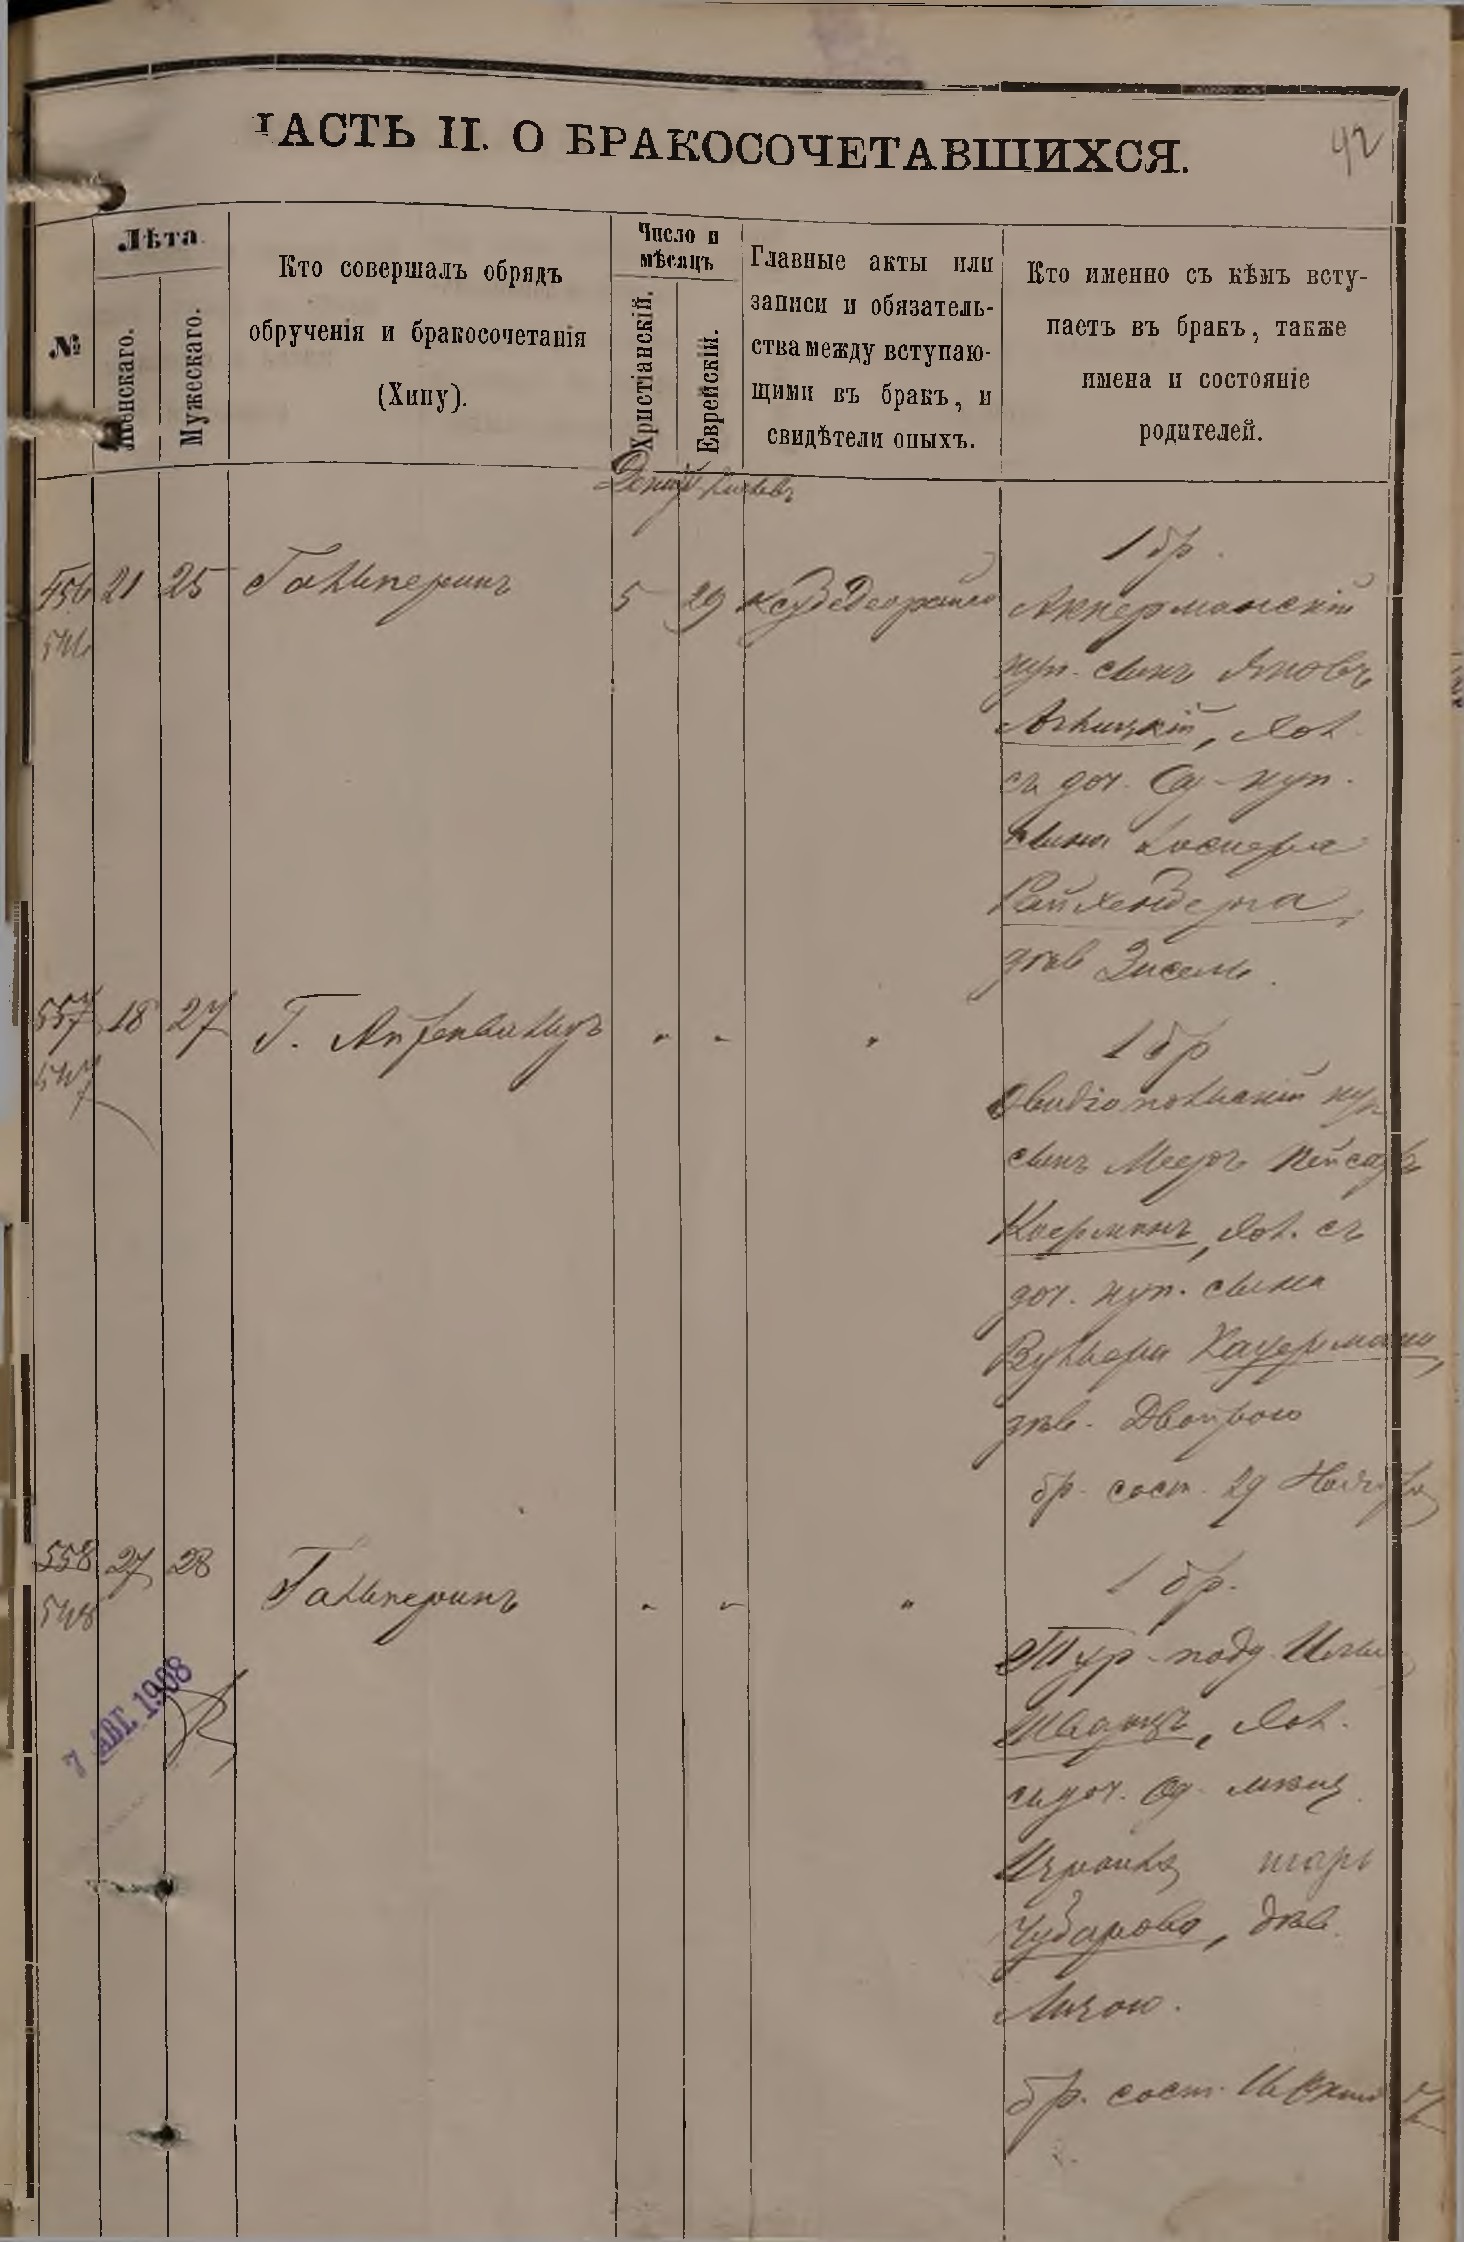 ЧАСТЬ II. О БРАКОСОЧЕТАВШИХСЯ.
42
№
Лѣта.
Женскаго.
Мужескаго.
Кто совершалъ обрядъ
обрученія и бракосочетанія
(Хупу).
Число и
мѣсяцъ
Христіанскій.
Еврейскій.
Главные акты или
записи и обязатель-
ства между вступаю-
щими въ бракъ, и
свидѣтели оныхъ.
Кто именно съ кѣмъ всту-
паетъ въ бракъ, также
имена и состояніе
родителей.
556 21 25 Гальперинъ 5 29
546
1 бр.
Аккерманскій
куп. сынъ Яковъ
хол.
съ доч. Од. куп.
сына
Райхенберга,
дѣв. Зисель
557 18 27 Г. " " "
547
1 бр
Овидіопольскій куп
сынъ Мееръ Пейсахъ
Коерманъ, хол. съ
доч. куп. сына
Кауфмана,
дѣв. Двойрою
бр. сост. 29 Ноября
558 27 28 Гальперинъ " " "
548
1 бр.
Тур. подд.
Шварцъ, хол.
съ доч. Од. мѣщ.
Израиля
Чубарова, дѣв.
Лизою.
бр. сост.
7 АВГ. 1908